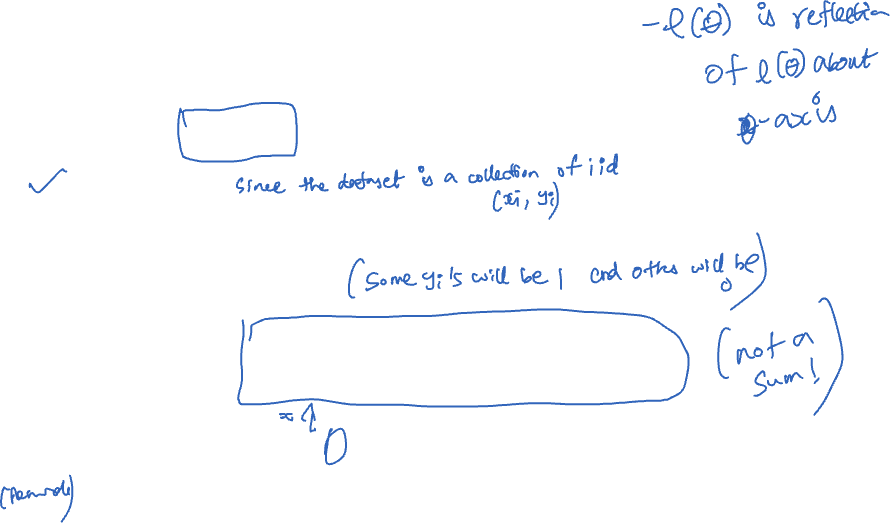 -l(θ) is reflection
of l(θ) about
θ-axis
Since the dataset is a collection of iid
(xi, yi)
(Some yi's will be 1 and others will be
0)
(not a
sum!)